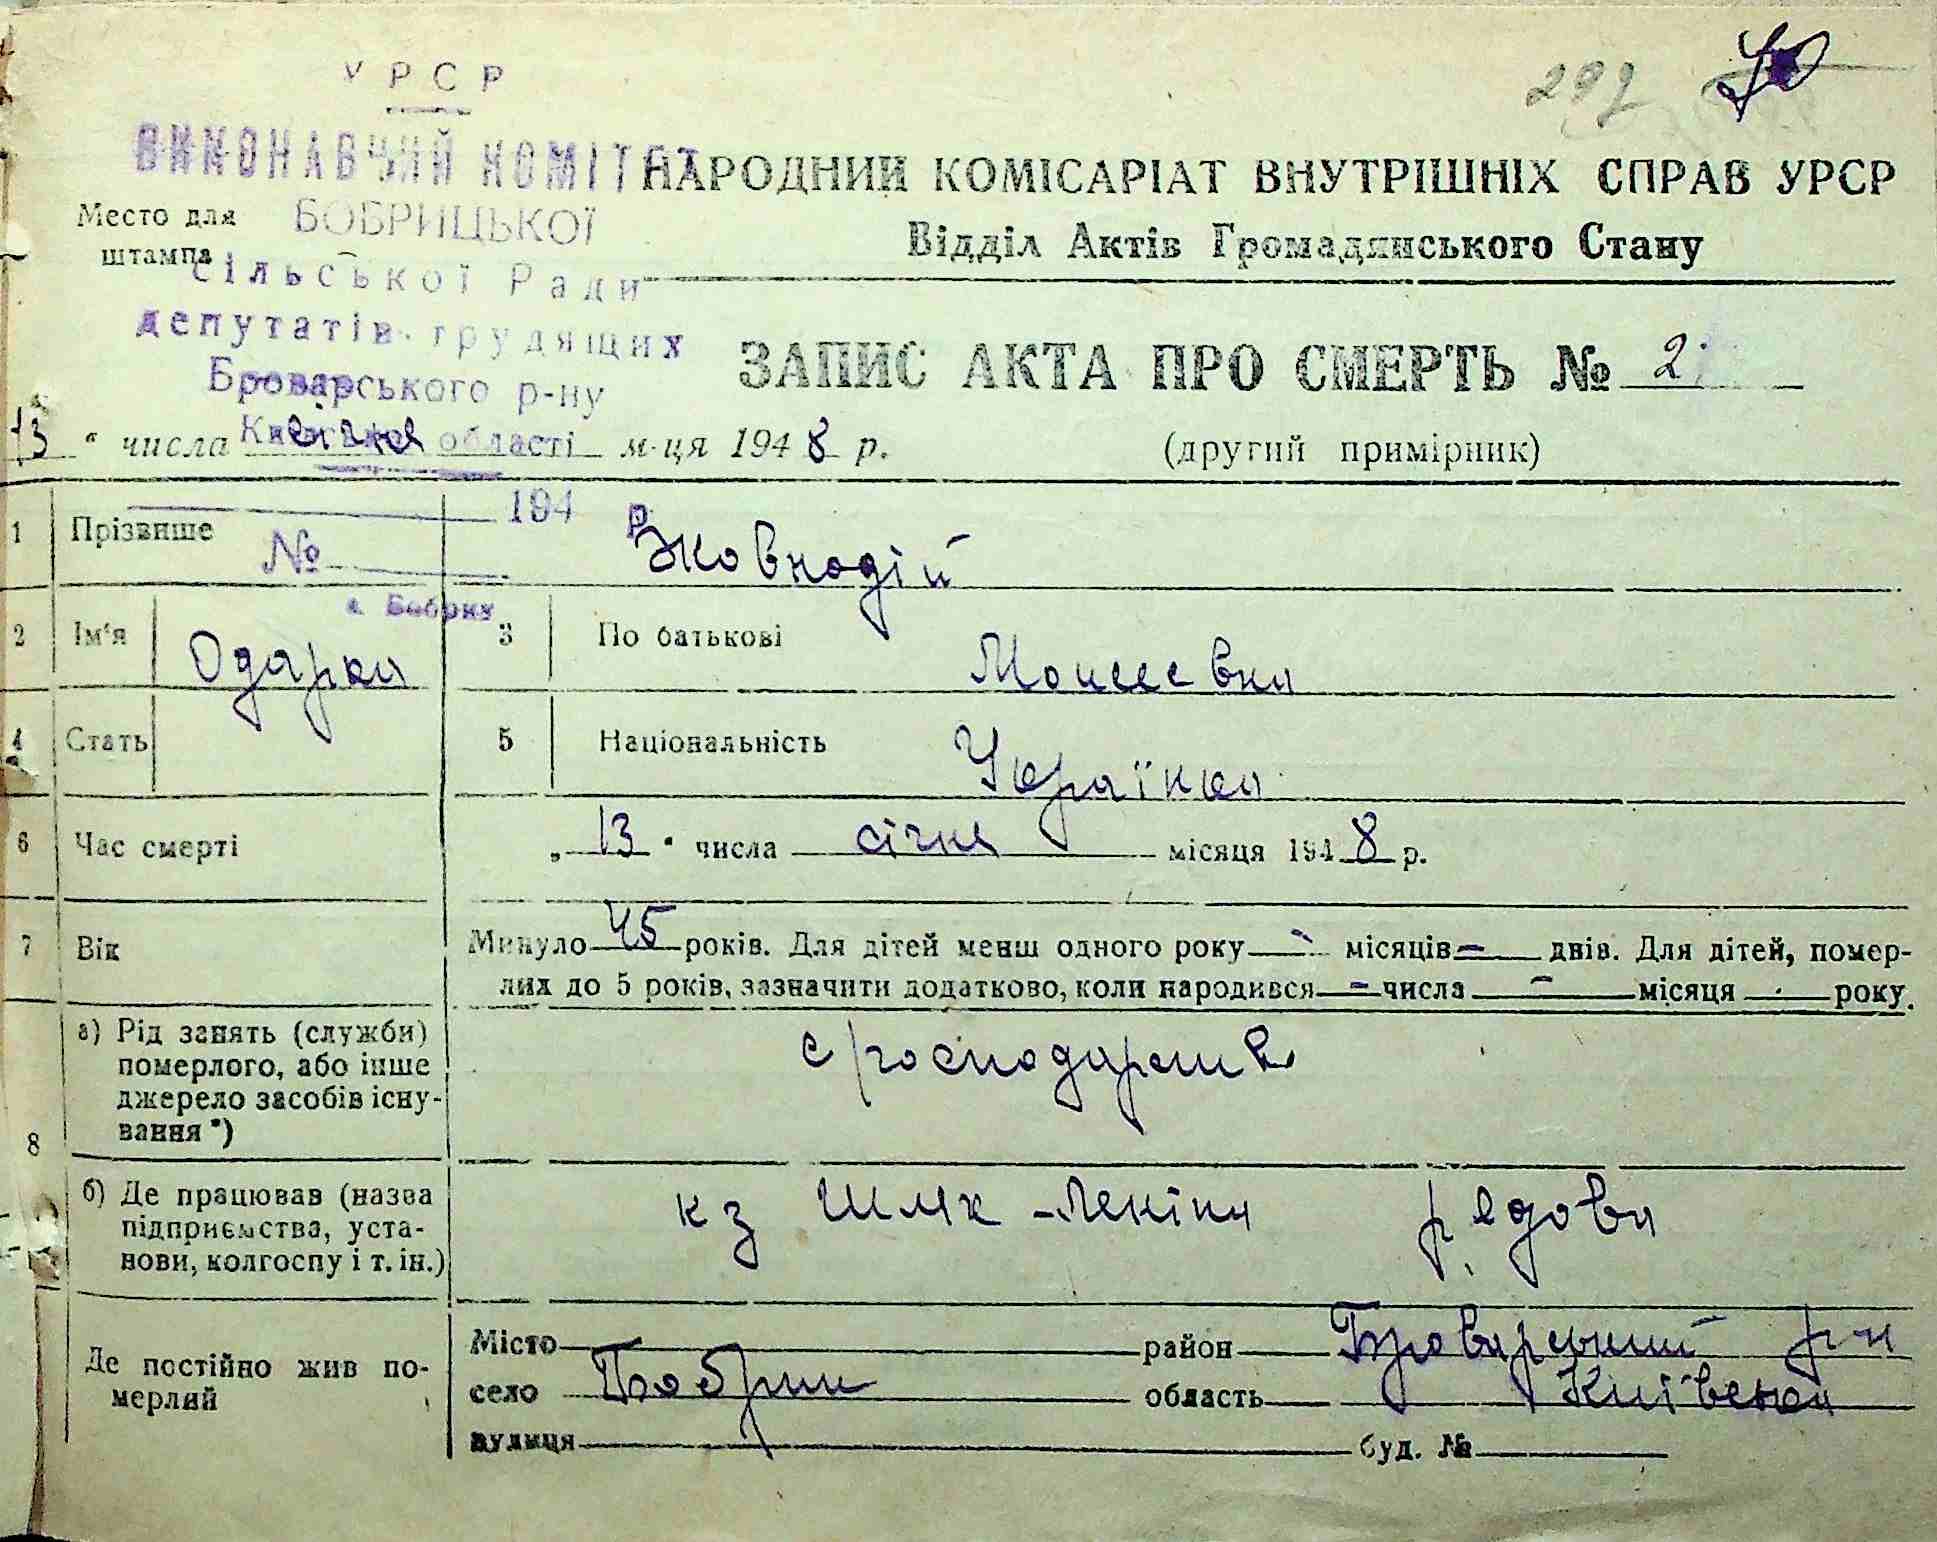 УРСР
ВИКОНАВЧИЙ КОМІТЕТ
БОБРИЦЬКОЇ
сільської Ради
депутатів трудящих
Броварського р-ну
Київської області
194 р.
№
с. Бобрик
292
Место для
штампа
НАРОДНИЙ КОМІСАРІАТ ВНУТРІШНІХ СПРАВ УРСР
Відділ Актів Громадянського Стану
ЗАПИС АКТА ПРО СМЕРТЬ № 2
13 " числа січня м-ця 1948 р.
(другий примірник)
1 Прізвище Жовнодій
2 Ім'я Одарка 3 По батькові Моисеевна
4 Стать 5 Національність Українка
6 Час смерті „ 13 " числа січня місяця 1948 р.
7 Вік Минуло 45 років. Для дітей менш одного року - місяців - днів. Для дітей, помер-
лих до 5 років, зазначити додатково, коли народився - числа - місяця - року.
8 а) Рід занять (служби)
померлого, або інше
джерело засобів існу-
вання *)
с/господарства
б) Де працював (назва
підприємства, уста-
нови, колгоспу і т. ін.)
кз Шлях -Леніна рядова
Де постійно жив по-
мерлий
Місто район Броварський р-н
село Бобрик область Київська
вулиця буд. №